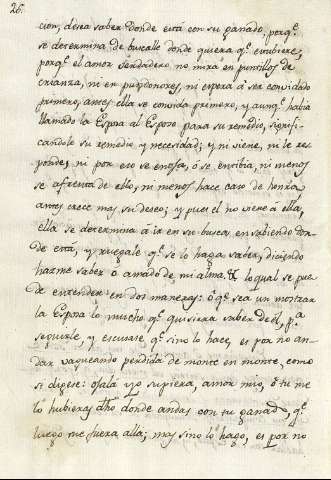 26.
cion, desea saber donde está con su ganado, porqe.
se determina de buscalle donde quiera qe. estubiere,
porqe. el amor verdadero no mira en puntillos de
crianza, ni en pundonores, ni espera á ser convidado
primero, antes ella se convida primero, y aunqe. habia
llamado la Esposa al Esposo para su remedio, signifi-
candole su remedio, y necesidad; y ni viene, ni le res
ponde; ni por eso se enoja, ó se entibia, ni menos
se afrenta de ello, ni menos hace caso de honra,
antes crece mas su deseo; y pues el no viene á ella,
ella se determina á ir en su busca, en sabiendo don-
de está, y ruegale qe. se lo haga saber, diciendo
hazme saber ó amado de mi alma &. lo qual se pue-
de entender en dos maneras: ó qe. sea un mostrar
la Esposa lo mucho qe. quisiera saber de el, pa.
seguirle y escusase qe. sino lo hace, es por no an-
dar vagueando perdida de monte en monte, como
si digese: ojalá yo supiera, amor mio, ó tu me
lo hubieras dho donde andas con tu ganado, qe.
luego me fuera alla; mas sino lo hago, es por no